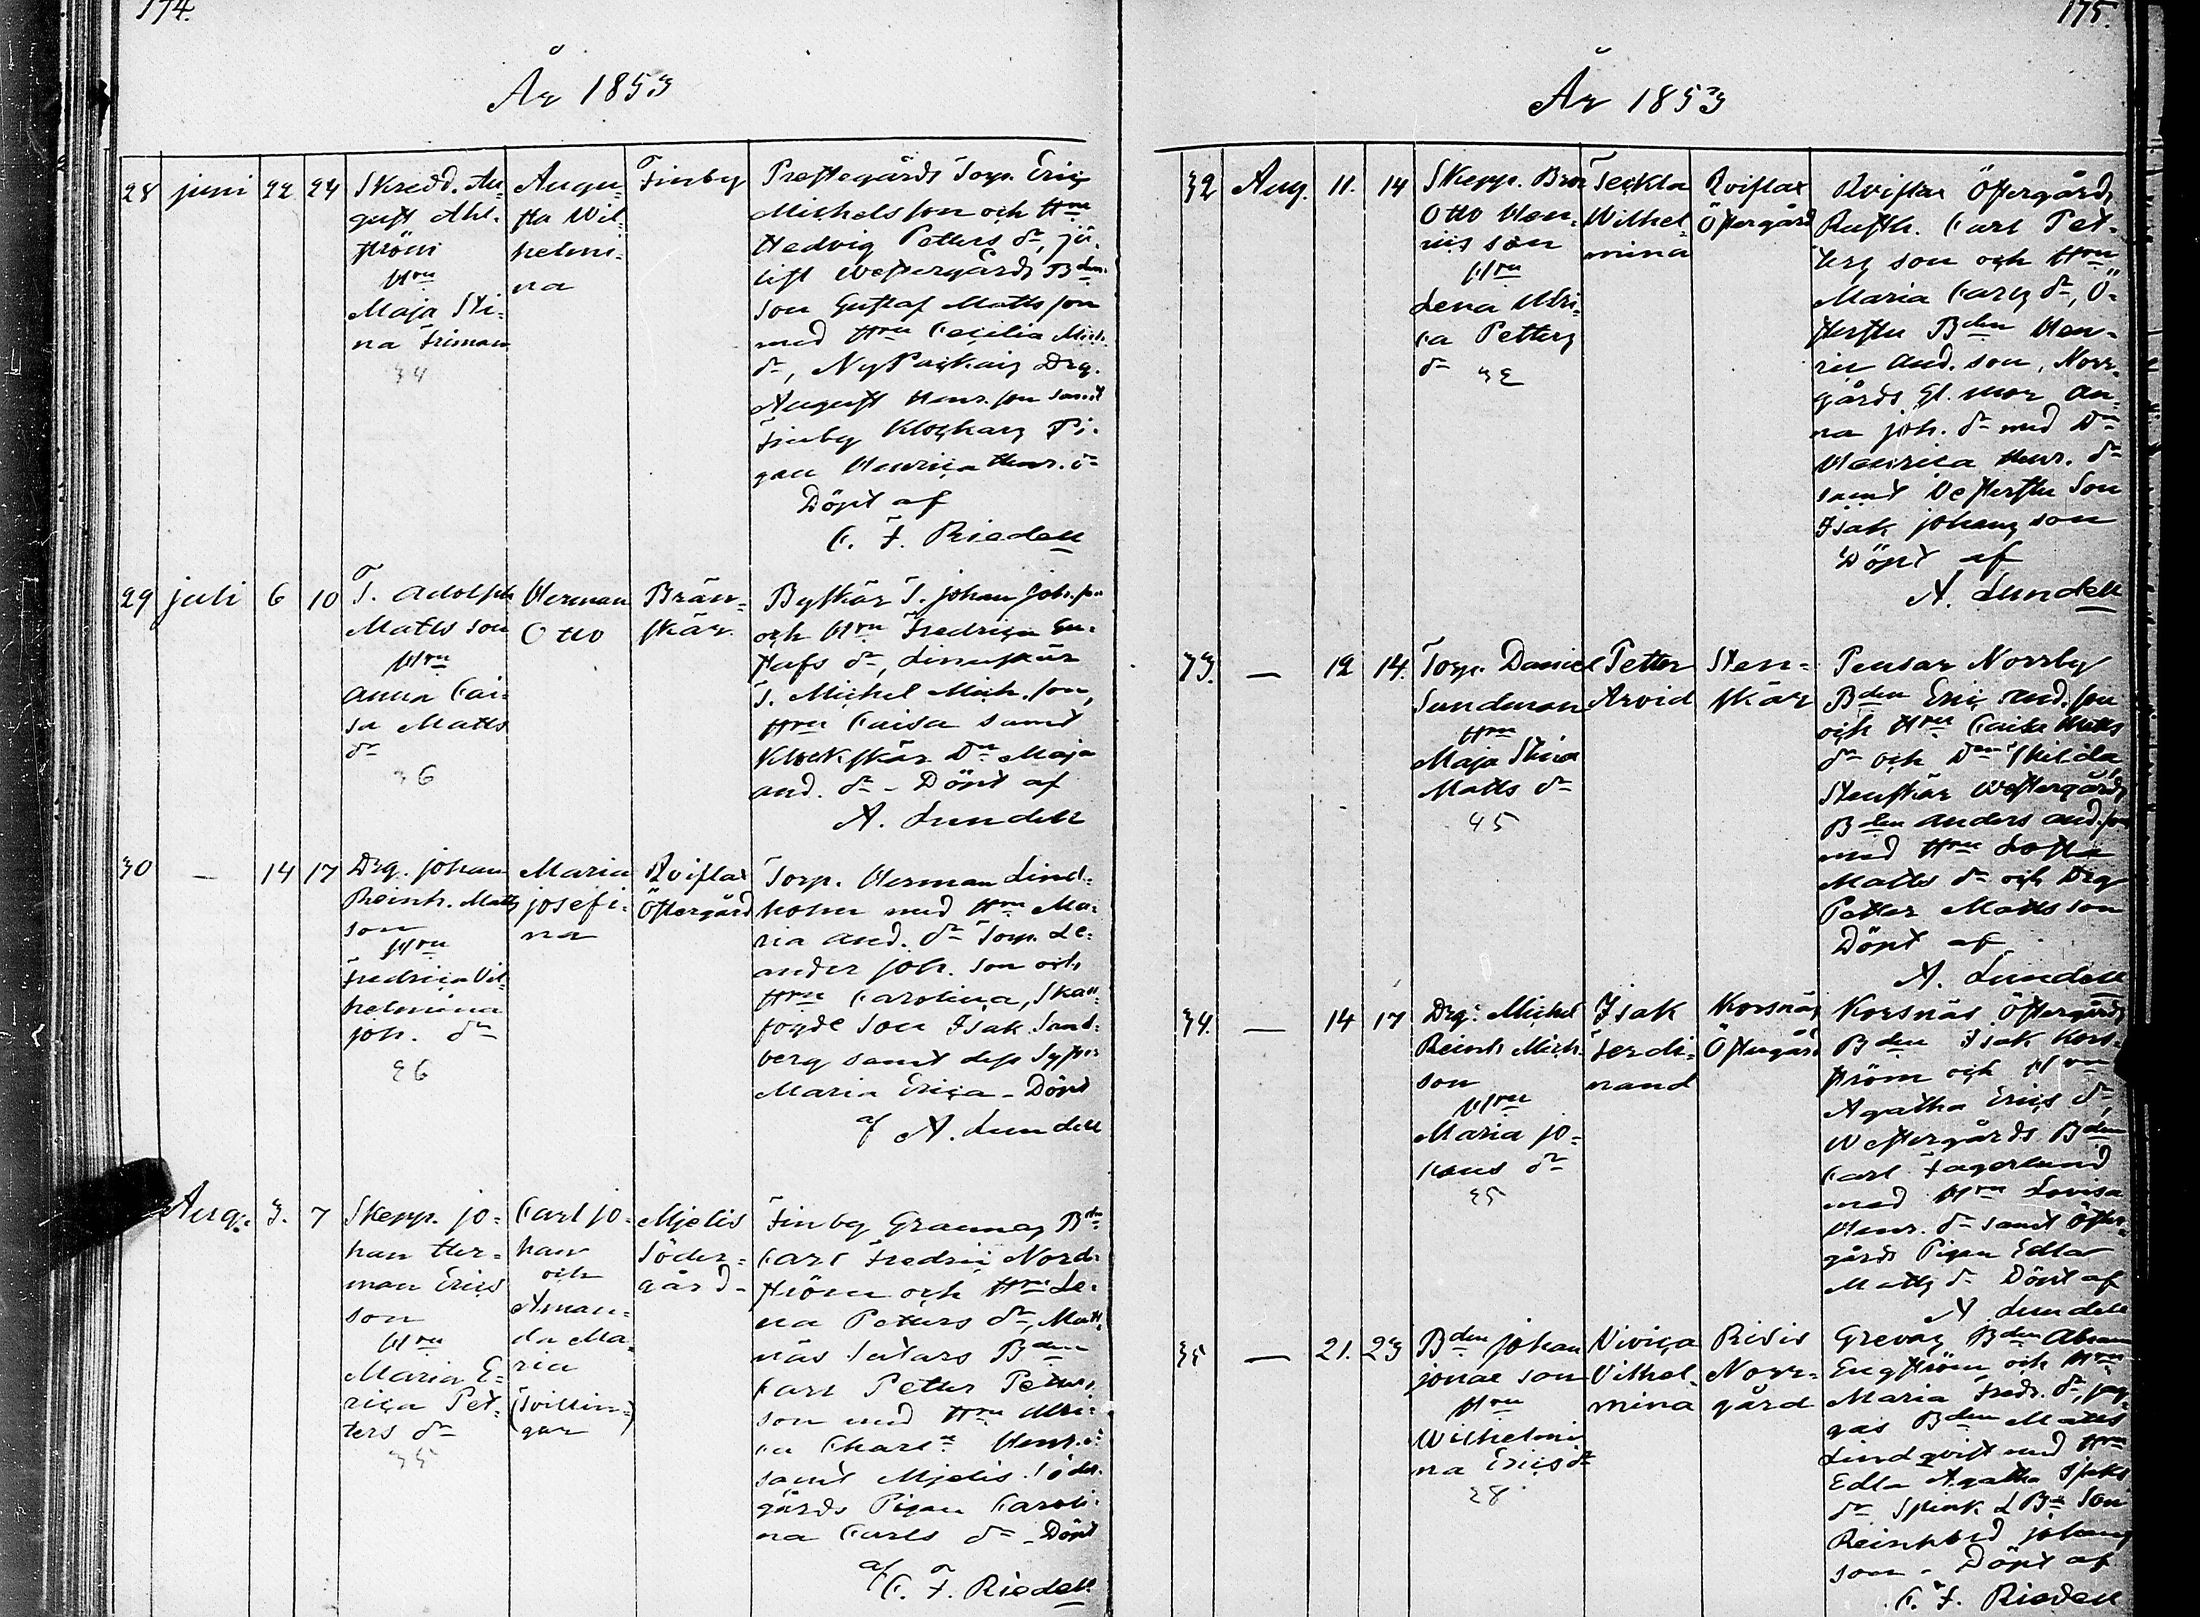 174.
År 1853
28 juni 22 24
Skredd. Au-
gust Ahl-
ström
Hru
Maja Sti-
na Friman
34
Augu-
sta Wil-
helmi-
na
Finby
Prestegårds Torp. Eric
Michelsson och Hru
Hedvig Petters dr,
Westergårds Bden
son Gustaf Mattsson
med Hru Cecilia Mich.
dr, Drg.
August Henr. son samt
Finby Klockars Pi-
gan Henrica Henr. dr
Döpt af
C. F. Riedell
29 juli 6 10
T. Adolph
Matts son
Hru
Anna Cai-
sa Matts
dr
36
Herman
Otto
Brän-
skär
Byskär T. Johan Joh. son
och Hru Fredrica Gu-
stafs dr,
T. Michel Mich. son,
Hru Caisa samt
Klockskär Dn Maja
And. dr - Döpt af
A. Lundell
30 - 14 17
Drg. Johan
Reinh. Matts
son
Hru
Fredrica Vil-
helmina
Joh. dr
26
Maria
Josefi-
na
Qviflax
Östergård
Torp. Herman Lind-
holm med Hru Ma-
ria And. dr Torp. Le-
ander Joh. son och
Hru Carolina, Skall-
fogde son Isak Sand-
berg samt dess Syster
Maria Erica - Döpt
af A. Lundell
Aug. 3. 7
Skepp. Jo-
han Her-
man Erics
son
Hru
Maria E-
rica Pet-
ters dr
35
Carl Jo-
han
och
Aman-
da Ma-
ria
(Tvillin-
gar)
Mjelis
Söder-
gård -
Finby Grannas Bden
Carl Fredric Nord-
ström och Hru Le-
na Petters dr, Matt-
näs Bden
Carl Petter Petters
son med Hru Ulri-
ca Charl. Henr. dr
samt Mjelis Söder-
gårds Pigan Caroli-
na Carls dr - Döpt
af
C. F. Riedell
175.
År 1853
32 Aug. 11. 14
Skepp. Bror
Otto Hen-
rics son
Hru
Lena Ulri-
ca Petters
dr 32
Teckla
Wilhel-
mina
Qviflax
Östergård
Qviflax Östergårds
Rusth. Carl Pet-
ters son och Hru
Maria Carls dr, Ö-
stersta Bden Hen-
ric And. son, Norr-
gårds Gl. mor An-
na Joh. dr med Dn
Henrica Henr. dr
samt Vestersta Son
Isak Johans son
Döpt af
A. Lundell
33. - 12 14.
Torp. Daniel
Sundman
Hru
Maja Stina
Matts dr
45
Petter
Arvid
Sten-
skär
Pensar Norrby
Bden Eric And. son
och Hru Caisa Matts
dr och Dn
Stenskär Westergårds
Bden Anders And. son
med Hru Lotta
Matts dr och Drg
Petter Matts son
Döpt af
A. Lundell
34. - 14 17
Drg. Michel
Reinh Mich.
son
Hru
Maria Jo-
hans dr
35
Isak
Ferdi-
nand
Korsnäs
Östergård
Korsnäs Östergårds
Bden Isak Kors-
ström och Hru
Agatha Erics dr,
Westergårds Bden
Carl Fagerlund
med Hru Lovisa
Henr. dr samt Öster-
gårds Pigan Edla
Matts dr Döpt af
A. Lundell
35 - 21. 23
Bden Johan
Jonae son
Hru
Wilhelmi-
na Erics dr
28
Vivica
Vilhel-
mina
Risis
Norr-
gård
Grevas Bden Abram
Engström och Hru
Maria Fredr. dr,
Bden Matts
Lindqvist med Hru
Edla Agatha Isaks
dr Son
Reinhold Johans
son - Döpt af
C. F. Riedell